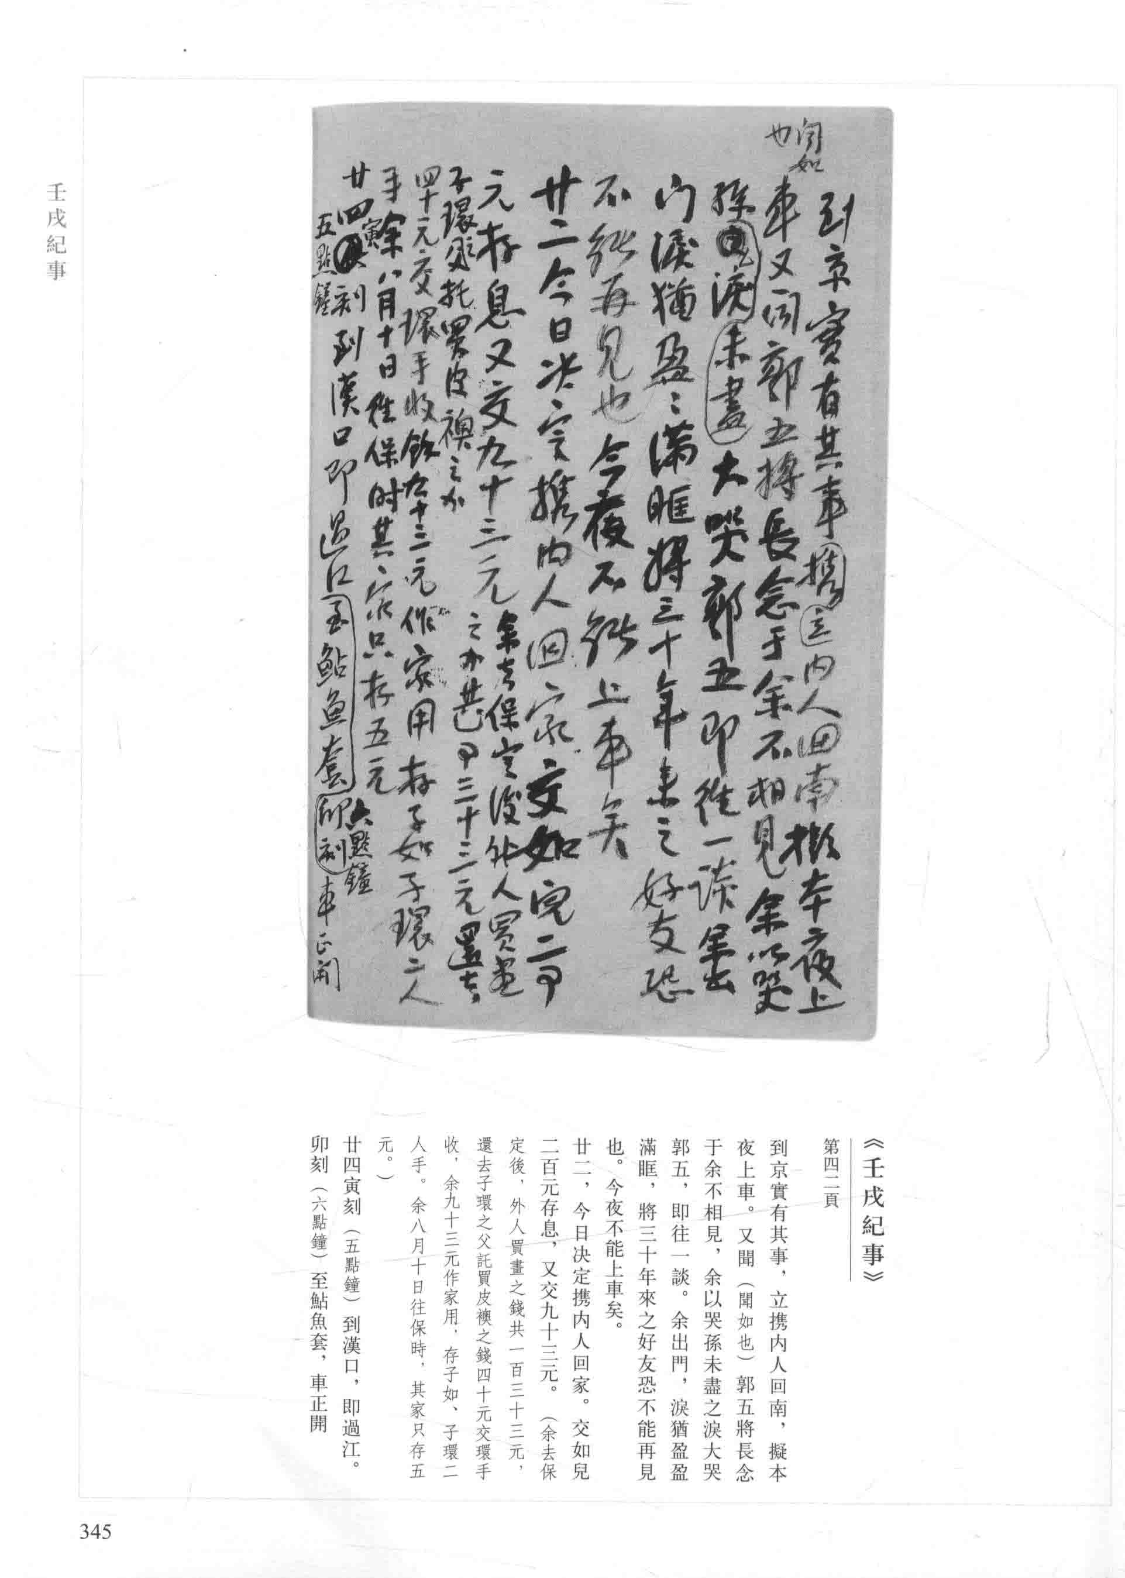 壬戌紀事
聞如
也
到京實有其事攜立内人回南擬本夜上
車又闻郭五將長念于余不相見余以哭
孫淚未盡大哭郭五即往一談余出
门淚猶盈〻滿眶將三十年來之好友恐
不能再見也今夜不能上車矣
廿二今日决定攜内人回家交如兒二百
元存息又交九十三元余去保定後外人買畫
之錢共百三十三元還去
子環父託買皮襖之錢
四十元交環手收餘九十三元作家用存子如子環二人
手余八月十日往保时其家只存五元
廿四寅刻到漢口即過江至鮎魚套卯刻車正開
五點鐘
六點鐘
《壬戌紀事》
第四二頁
到京實有其事，立携内人回南，擬本
夜上車。又聞（聞如也）郭五將長念
于余不相見，余以哭孫未盡之淚大哭
郭五，即往一談。余出門，淚猶盈盈
滿眶，將三十年來之好友恐不能再見
也。今夜不能上車矣。
廿二，今日决定携内人回家。交如兒
二百元存息，又交九十三元。（余去保
定後，外人買畫之錢共一百三十三元，
還去子環之父託買皮襖之錢四十元交環手
收，余九十三元作家用，存子如、子環二
人手。余八月十日往保時，其家只存五
元。）
廿四寅刻（五點鐘）到漢口，即過江。
卯刻（六點鐘）至鮎魚套，車正開
345